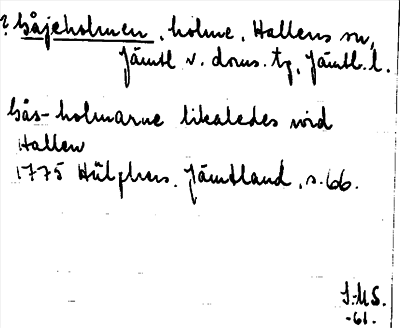 ? Gåjeholmen, holme, Hallens sn,
Jämtl. v. doms. tg, Jämtl. l.
Gås-holmarne likaledes wid
Hallen
1775 Hülphers. Jämtland, s. 66.
S.MS.
-61.